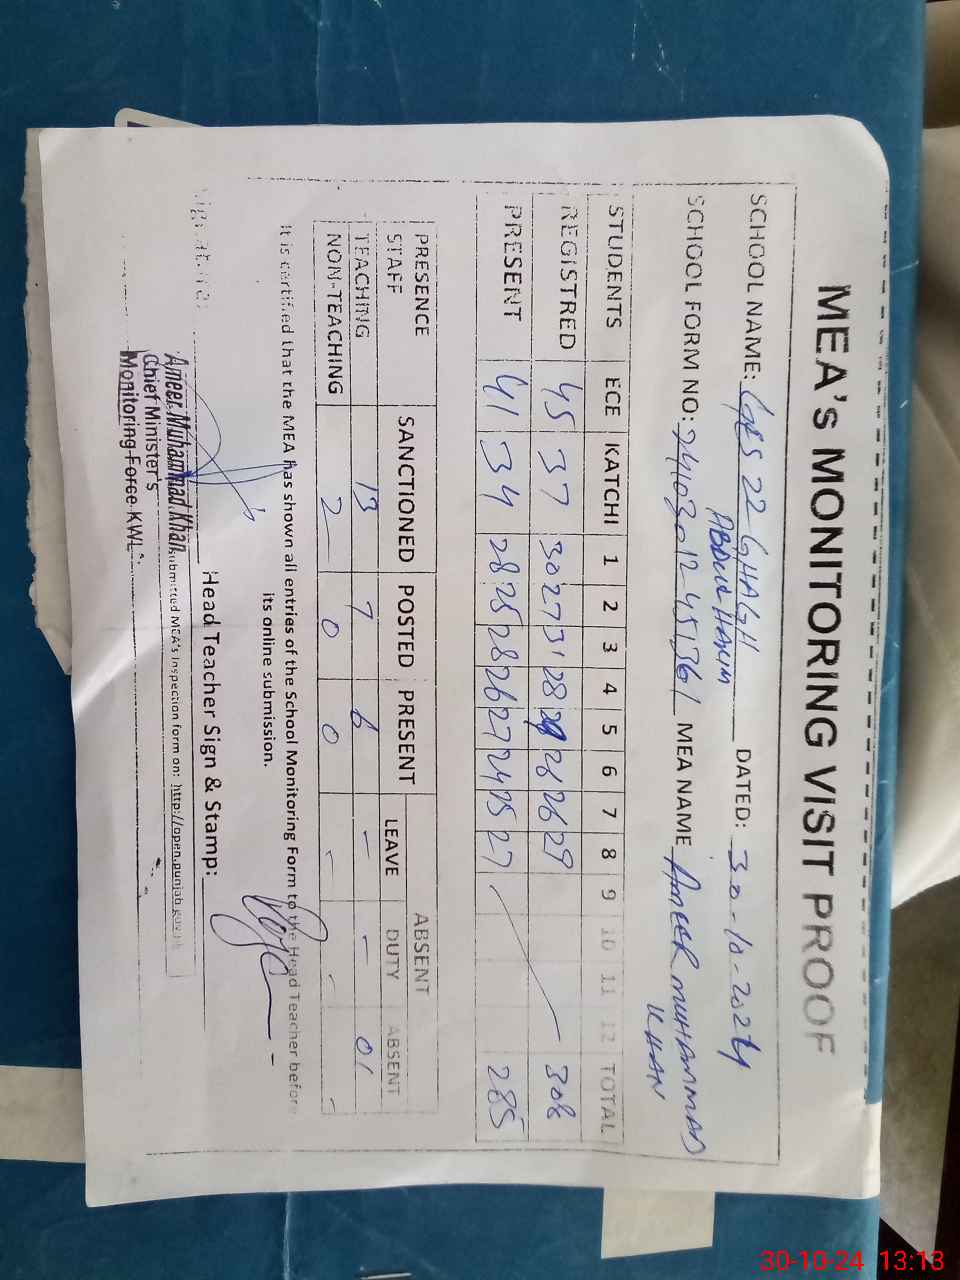 MEA's MONITORING VISIT PROOF
SCHOOL NAME: GES 22 GHAGH DATED: 30-10-2024
ABDUL HAKIM
SCHOOL FORM NO: MEA NAME AMEER MUHAMMAD
KHAN
STUDENTS ECE KATCHI 1 2 3 4 5 6 7 8 9 10 11 12 TOTAL
REGISTRED 45 37 30 27 31 28 28 26 29 308
PRESENT 41 34 28 25 28 26 27 24 25 27 285
PRESENCE SANCTIONED POSTED PRESENT ABSENT
STAFF LEAVE DUTY ABSENT
TEACHING 13 7 6 - - 01
NON-TEACHING 2 0 0 - - -
It is certified that the MEA has shown all entries of the School Monitoring Form to the Head Teacher before
its online submission.
Head Teacher Sign & Stamp:
Ameer Muhammad Khan
submitted MEA's inspection form on: http://open.punjab.gov.pk
Chief Minister's
Monitoring Force KWL.
30-10-24 13:13